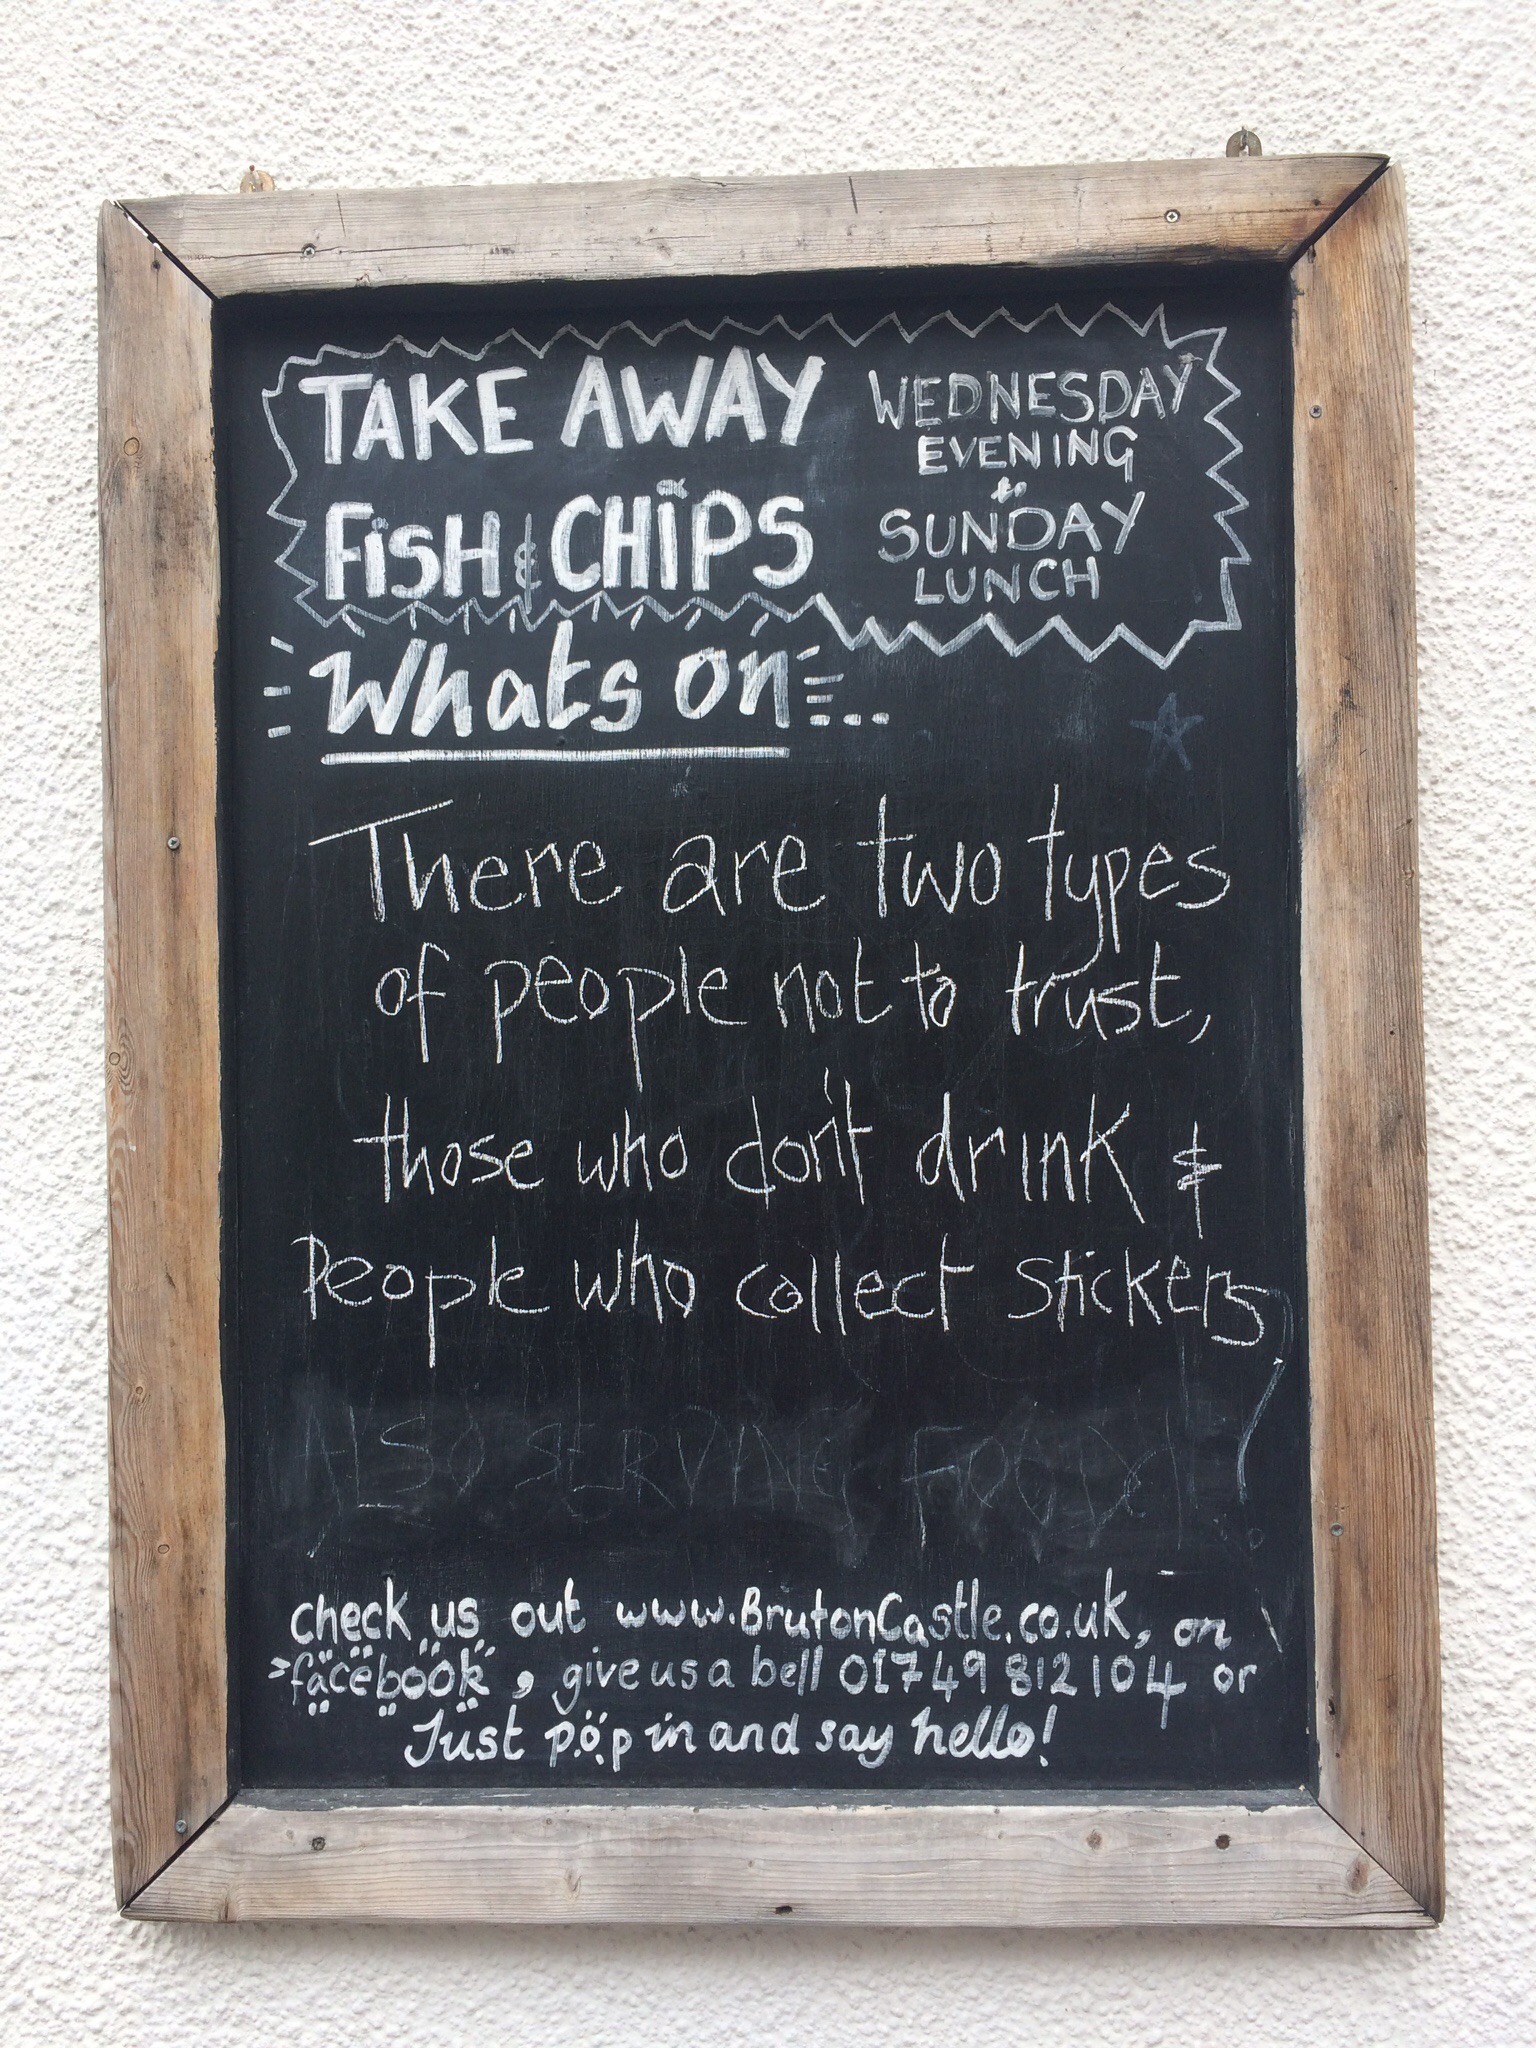 TAKE AWAY
FiSH & CHiPS
WEDNESDAY
EVENING
to
SUNDAY
LUNCH
Whats on...
There are two types
of people not to trust,
those who don't drink &
People who collect stickers
ALSO SERVING FOOD
check us out www.BrutonCastle.co.uk, on
facebook, give us a bell 01749 812 104 or
Just pop in and say hello!